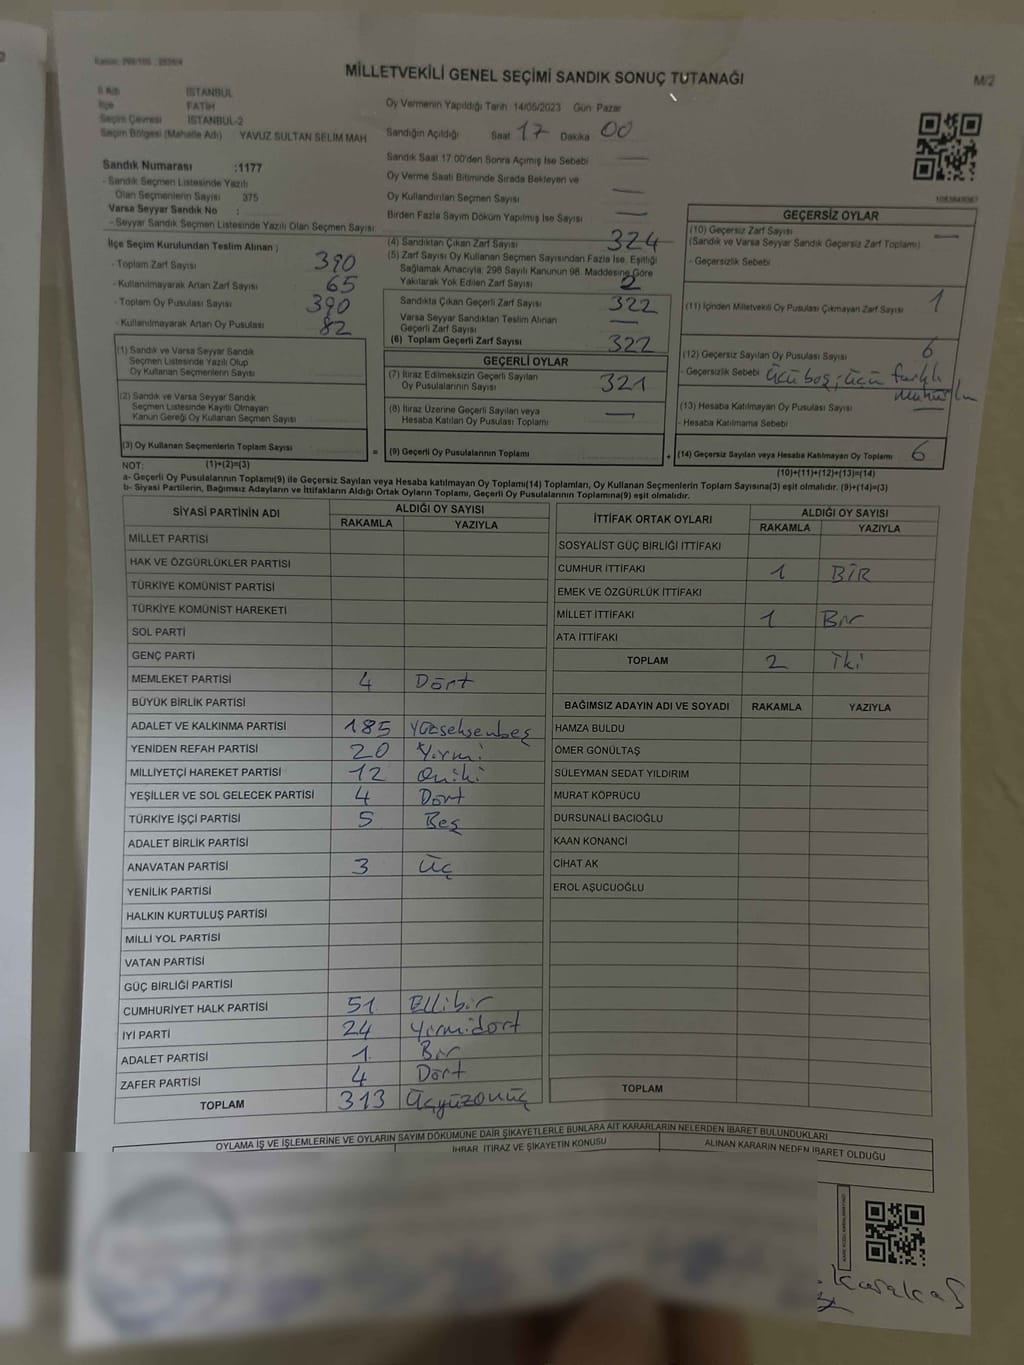 MİLLETVEKİLİ GENEL SEÇİMİ SANDIK SONUÇ TUTANAĞI
M/2
İl Adı İSTANBUL
İlçe FATİH
Seçim Çevresi İSTANBUL-2
Seçim Bölgesi (Mahalle Adı) YAVUZ SULTAN SELİM MAH
Sandık Numarası :1177
- Sandık Seçmen Listesinde Yazılı
Olan Seçmenlerin Sayısı 375
Varsa Seyyar Sandık No :
- Seyyar Sandık Seçmen Listesinde Yazılı Olan Seçmen Sayısı
Oy Vermenin Yapıldığı Tarih 14/05/2023 Gün Pazar
Sandığın Açıldığı Saat 17 Dakika 00
Sandık Saat 17:00'den Sonra Açımış İse Sebebi —
Oy Verme Saati Bitiminde Sırada Bekleyen ve
Oy Kullandırılan Seçmen Sayısı —
Birden Fazla Sayım Döküm Yapılmış İse Sayısı —
İlçe Seçim Kurulundan Teslim Alınan ;
- Toplam Zarf Sayısı 390
- Kullanılmayarak Artan Zarf Sayısı 65
- Toplam Oy Pusulası Sayısı 390
- Kullanılmayarak Artan Oy Pusulası 82
(1) Sandık ve Varsa Seyyar Sandık
Seçmen Listesinde Yazılı Olup
Oy Kullanan Seçmenlerin Sayısı
(2) Sandık ve Varsa Seyyar Sandık
Seçmen Listesinde Kayıtlı Olmayan
Kanun Gereği Oy Kullanan Seçmen Sayısı
(3) Oy Kullanan Seçmenlerin Toplam Sayısı
(4) Sandıktan Çıkan Zarf Sayısı 324
(5) Zarf Sayısı Oy Kullanan Seçmen Sayısından Fazla İse, Eşitliği
Sağlamak Amacıyla; 298 Sayılı Kanunun 98. Maddesine Göre
Yakılarak Yok Edilen Zarf Sayısı 2
Sandıkta Çıkan Geçerli Zarf Sayısı 322
Varsa Seyyar Sandıktan Teslim Alınan
Geçerli Zarf Sayısı —
(6) Toplam Geçerli Zarf Sayısı 322
GEÇERLİ OYLAR
(7) İtiraz Edilmeksizin Geçerli Sayılan
Oy Pusulalarının Sayısı 321
(8) İtiraz Üzerine Geçerli Sayılan veya
Hesaba Katılan Oy Pusulası Toplamı —
= (9) Geçerli Oy Pusulalarının Toplamı
GEÇERSİZ OYLAR
(10) Geçersiz Zarf Sayısı —
(Sandık ve Varsa Seyyar Sandık Geçersiz Zarf Toplamı)
- Geçersizlik Sebebi
(11) İçinden Milletvekili Oy Pusulası Çıkmayan Zarf Sayısı 1
(12) Geçersiz Sayılan Oy Pusulası Sayısı 6
- Geçersizlik Sebebi üçü boş, üçü farklı
(13) Hesaba Katılmayan Oy Pusulası Sayısı —
- Hesaba Katılmama Sebebi
+ (14) Geçersiz Sayılan veya Hesaba Katılmayan Oy Toplamı 6
NOT: (1)+(2)=(3)
(10)+(11)+(12)+(13)=(14)
a- Geçerli Oy Pusulalarının Toplamı(9) ile Geçersiz Sayılan veya Hesaba katılmayan Oy Toplamı(14) Toplamları, Oy Kullanan Seçmenlerin Toplam Sayısına(3) eşit olmalıdır. (9)+(14)=(3)
b- Siyasi Partilerin, Bağımsız Adayların ve İttifakların Aldığı Ortak Oyların Toplamı, Geçerli Oy Pusulalarının Toplamına(9) eşit olmalıdır.
SİYASİ PARTİNİN ADI ALDIĞI OY SAYISI
RAKAMLA YAZIYLA
MİLLET PARTİSİ
HAK VE ÖZGÜRLÜKLER PARTİSİ
TÜRKİYE KOMÜNİST PARTİSİ
TÜRKİYE KOMÜNİST HAREKETİ
SOL PARTİ
GENÇ PARTİ
MEMLEKET PARTİSİ 4 Dört
BÜYÜK BİRLİK PARTİSİ
ADALET VE KALKINMA PARTİSİ 185 Yüzseksenbeş
YENİDEN REFAH PARTİSİ 20 Yirmi
MİLLİYETÇİ HAREKET PARTİSİ 12 Oniki
YEŞİLLER VE SOL GELECEK PARTİSİ 4 Dört
TÜRKİYE İŞÇİ PARTİSİ 5 Beş
ADALET BİRLİK PARTİSİ
ANAVATAN PARTİSİ 3 Üç
YENİLİK PARTİSİ
HALKIN KURTULUŞ PARTİSİ
MİLLİ YOL PARTİSİ
VATAN PARTİSİ
GÜÇ BİRLİĞİ PARTİSİ
CUMHURİYET HALK PARTİSİ 51 Ellibir
İYİ PARTİ 24 Yirmidört
ADALET PARTİSİ 1 Bir
ZAFER PARTİSİ 4 Dört
TOPLAM 313 Üçyüzonüç
İTTİFAK ORTAK OYLARI ALDIĞI OY SAYISI
RAKAMLA YAZIYLA
SOSYALİST GÜÇ BİRLİĞİ İTTİFAKI
CUMHUR İTTİFAKI 1 BİR
EMEK VE ÖZGÜRLÜK İTTİFAKI
MİLLET İTTİFAKI 1 Bir
ATA İTTİFAKI
TOPLAM 2 İki
BAĞIMSIZ ADAYIN ADI VE SOYADI RAKAMLA YAZIYLA
HAMZA BULDU
ÖMER GÖNÜLTAŞ
SÜLEYMAN SEDAT YILDIRIM
MURAT KÖPRÜCÜ
DURSUNALİ BACIOĞLU
KAAN KONANCİ
CİHAT AK
EROL AŞUCUOĞLU
TOPLAM
OYLAMA İŞ VE İŞLEMLERİNE VE OYLARIN SAYIM DÖKÜMÜNE DAİR ŞİKAYETLERLE BUNLARA AİT KARARLARIN NELERDEN İBARET BULUNDUKLARI
İHBAR, İTİRAZ VE ŞİKAYETİN KONUSU
ALINAN KARARIN NEDEN İBARET OLDUĞU
Karakaş